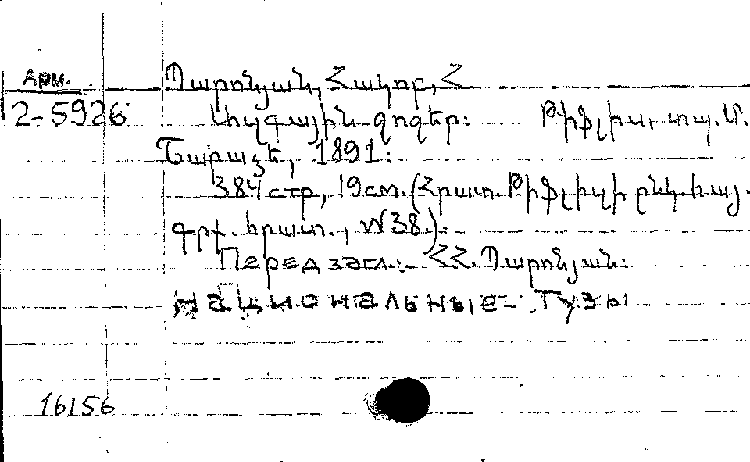 Арм.
2-5926
Պարոնյան, Հակոբ, Հ
Ազգային ջոջեր: Թիֆլիս, տպ. Մ.
Շարաձե, 1891:
384 стр, 19 см. (Հրատ. Թիֆլիսի ընկ. հայ.
գրք. հրատ., N 38).
Перед загл.: Հ.Հ. Պարոնյան:
национальные Тузы
16156